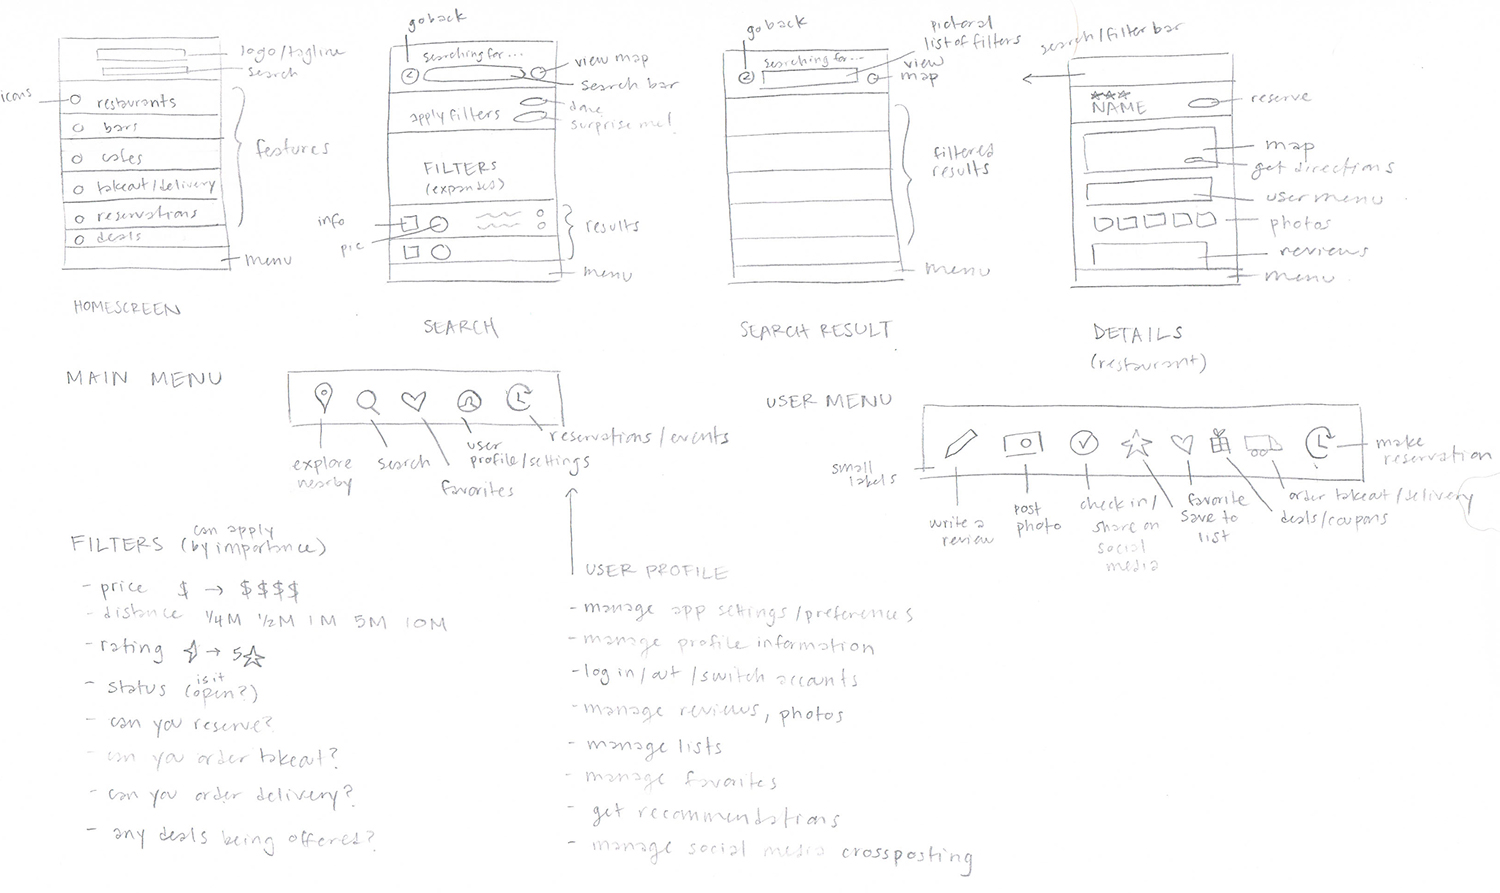 logo/tagline
search
icons
restaurants
bars
cafes
takeout/delivery
reservations
deals
features
menu
HOMESCREEN
go back
searching for...
view map
search bar
apply filters
done
surprise me!
FILTERS
(expanses)
info
pic
results
menu
SEARCH
go back
pictoral
list of filters
searching for...
view
map
filtered
results
menu
SEARCH RESULT
search/filter bar
NAME
reserve
map
get directions
user menu
photos
reviews
menu
DETAILS
(restaurant)
MAIN MENU
explore
nearby
search
favorites
user
profile/settings
reservations/events
USER MENU
small
labels
write a
review
post
photo
check in/
share on
social
media
favorite
save to
list
order takeout/delivery
deals/coupons
make
reservation
can apply
FILTERS (by importance)
- price $ → $$$$
- distance 1/4M 1/2M 1M 5M 10M
- rating → 5
is it
- status (open?)
- can you reserve?
- can you order takeout?
- can you order delivery?
- any deals being offered?
USER PROFILE
- manage app settings/preferences
- manage profile information
- log in/out/switch accounts
- manage reviews, photos
- manage lists
- manage favorites
- get recommendations
- manage social media crossposting